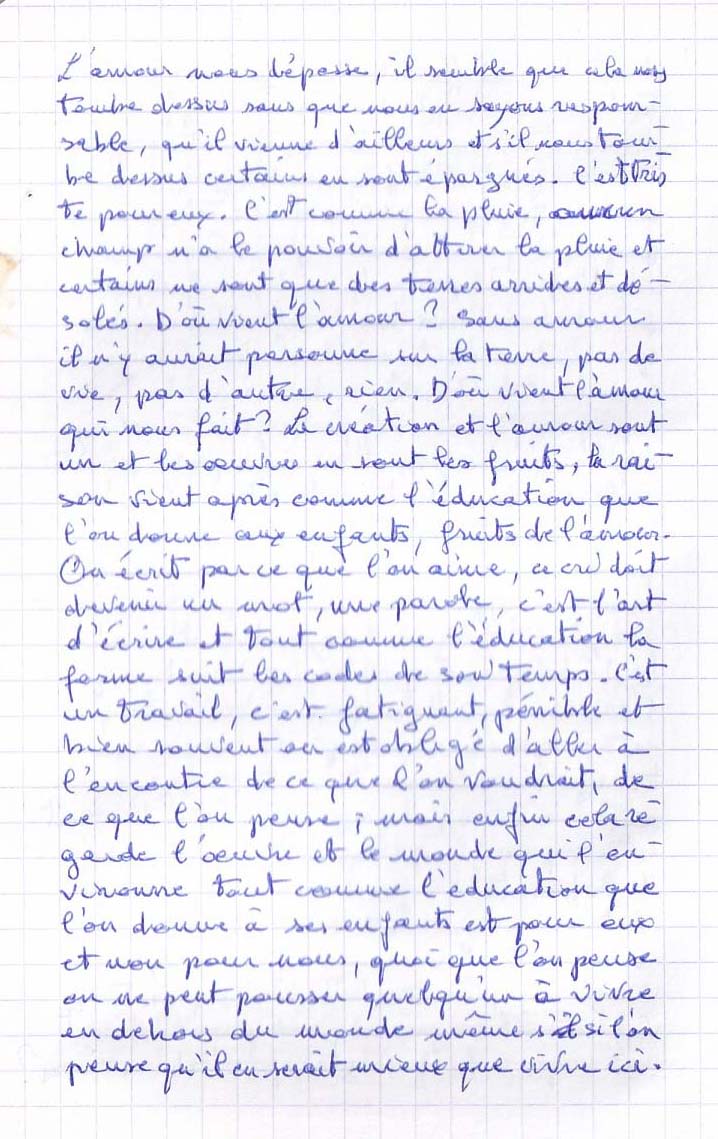 L'amour nous dépasse, il semble que cela nous
tombe dessus sans que nous en soyons respon-
sable, qu'il vienne d'ailleurs et s'il nous tom-
be dessus certains en sont épargnés. C'est tris
te pour eux. C'est comme la pluie, aucun
champ n'a le pouvoir d'attirer la pluie et
certains ne sont que des terres arrides et dé-
solés. D'où vient l'amour ? Sans amour
il n'y aurait personne sur la terre, pas de
vie, pas d'autre, rien. D'où vient l'amour
qui nous fait ? La création et l'amour sont
un et les oeuvres en sont les fruits, la rai-
son vient après comme l'éducation que
l'on donne aux enfants, fruits de l'amour.
On écrit parce que l'on aime, ce cri doit
devenir un mot, une parole, c'est l'art
d'écrire et tout comme l'éducation la
forme suit les codes de son temps. C'est
un travail, c'est fatiguant, pénible et
bien souvent on est obligé d'aller à
l'encontre de ce que l'on voudrait, de
ce que l'on pense ; mais enfin cela re-
garde l'oeuvre et le monde qui l'en-
vironne tout comme l'éducation que
l'on donne à ses enfants est pour eux
et non pour nous, quoi que l'on pense
on ne peut pousser quelqu'un à vivre
en dehors du monde même si l'on
pense qu'il en serait mieux que vivre ici.